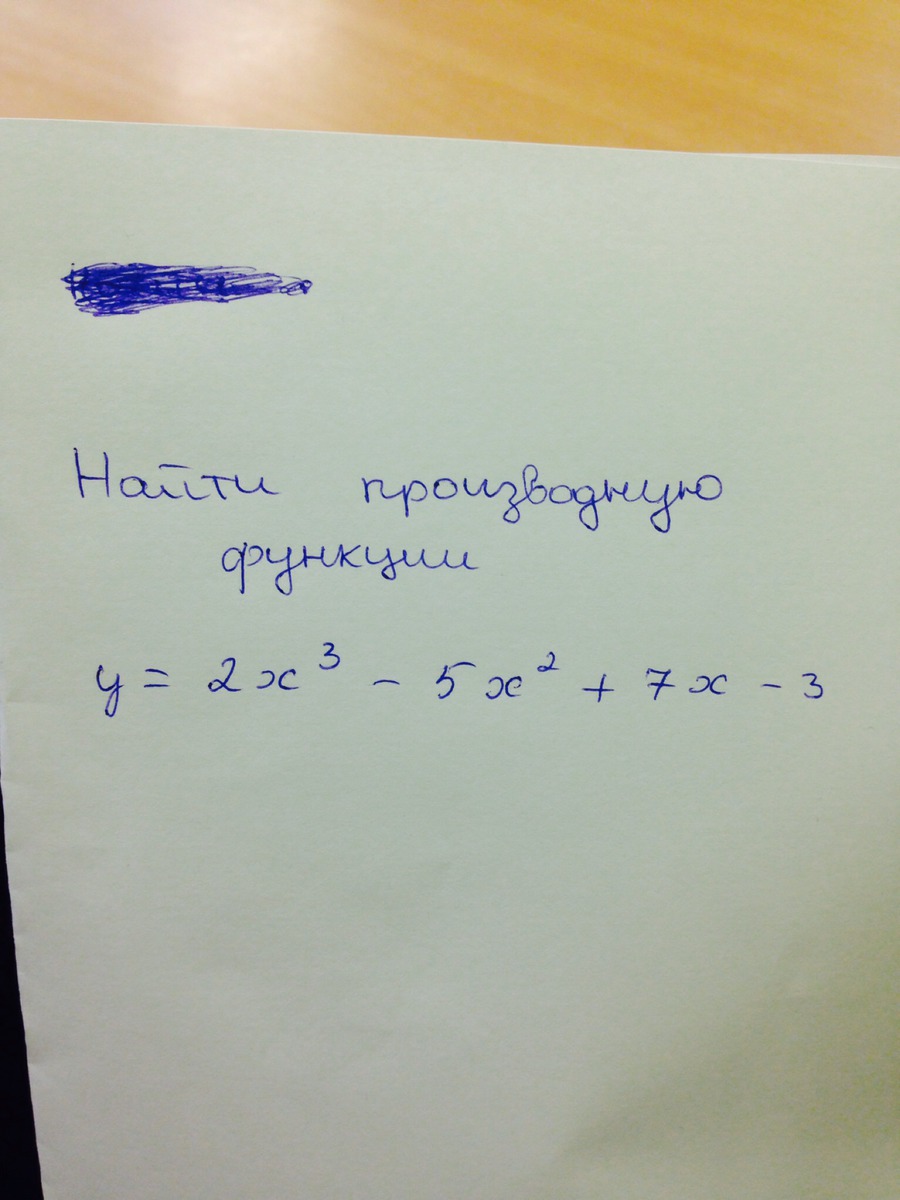 Найти производную
функции
y = 2x³ - 5x² + 7x - 3